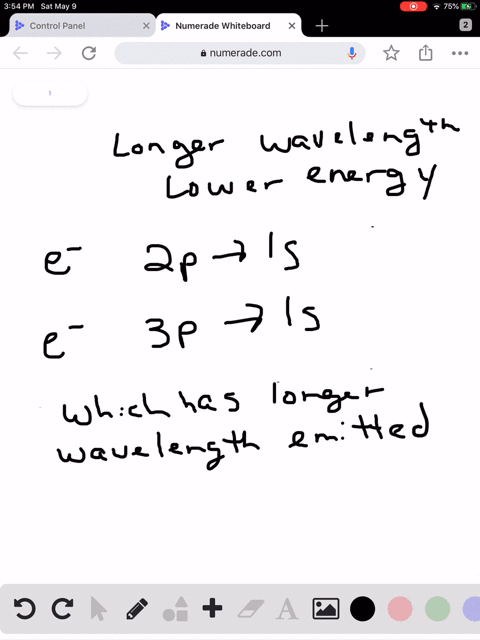 3:54 PM Sat May 9
75%
Control Panel
Numerade Whiteboard
2
numerade.com
1
Longer wavelength
Lower energy
e⁻ 2p → 1s
e⁻ 3p → 1s
which has longer
wavelength emitted
A